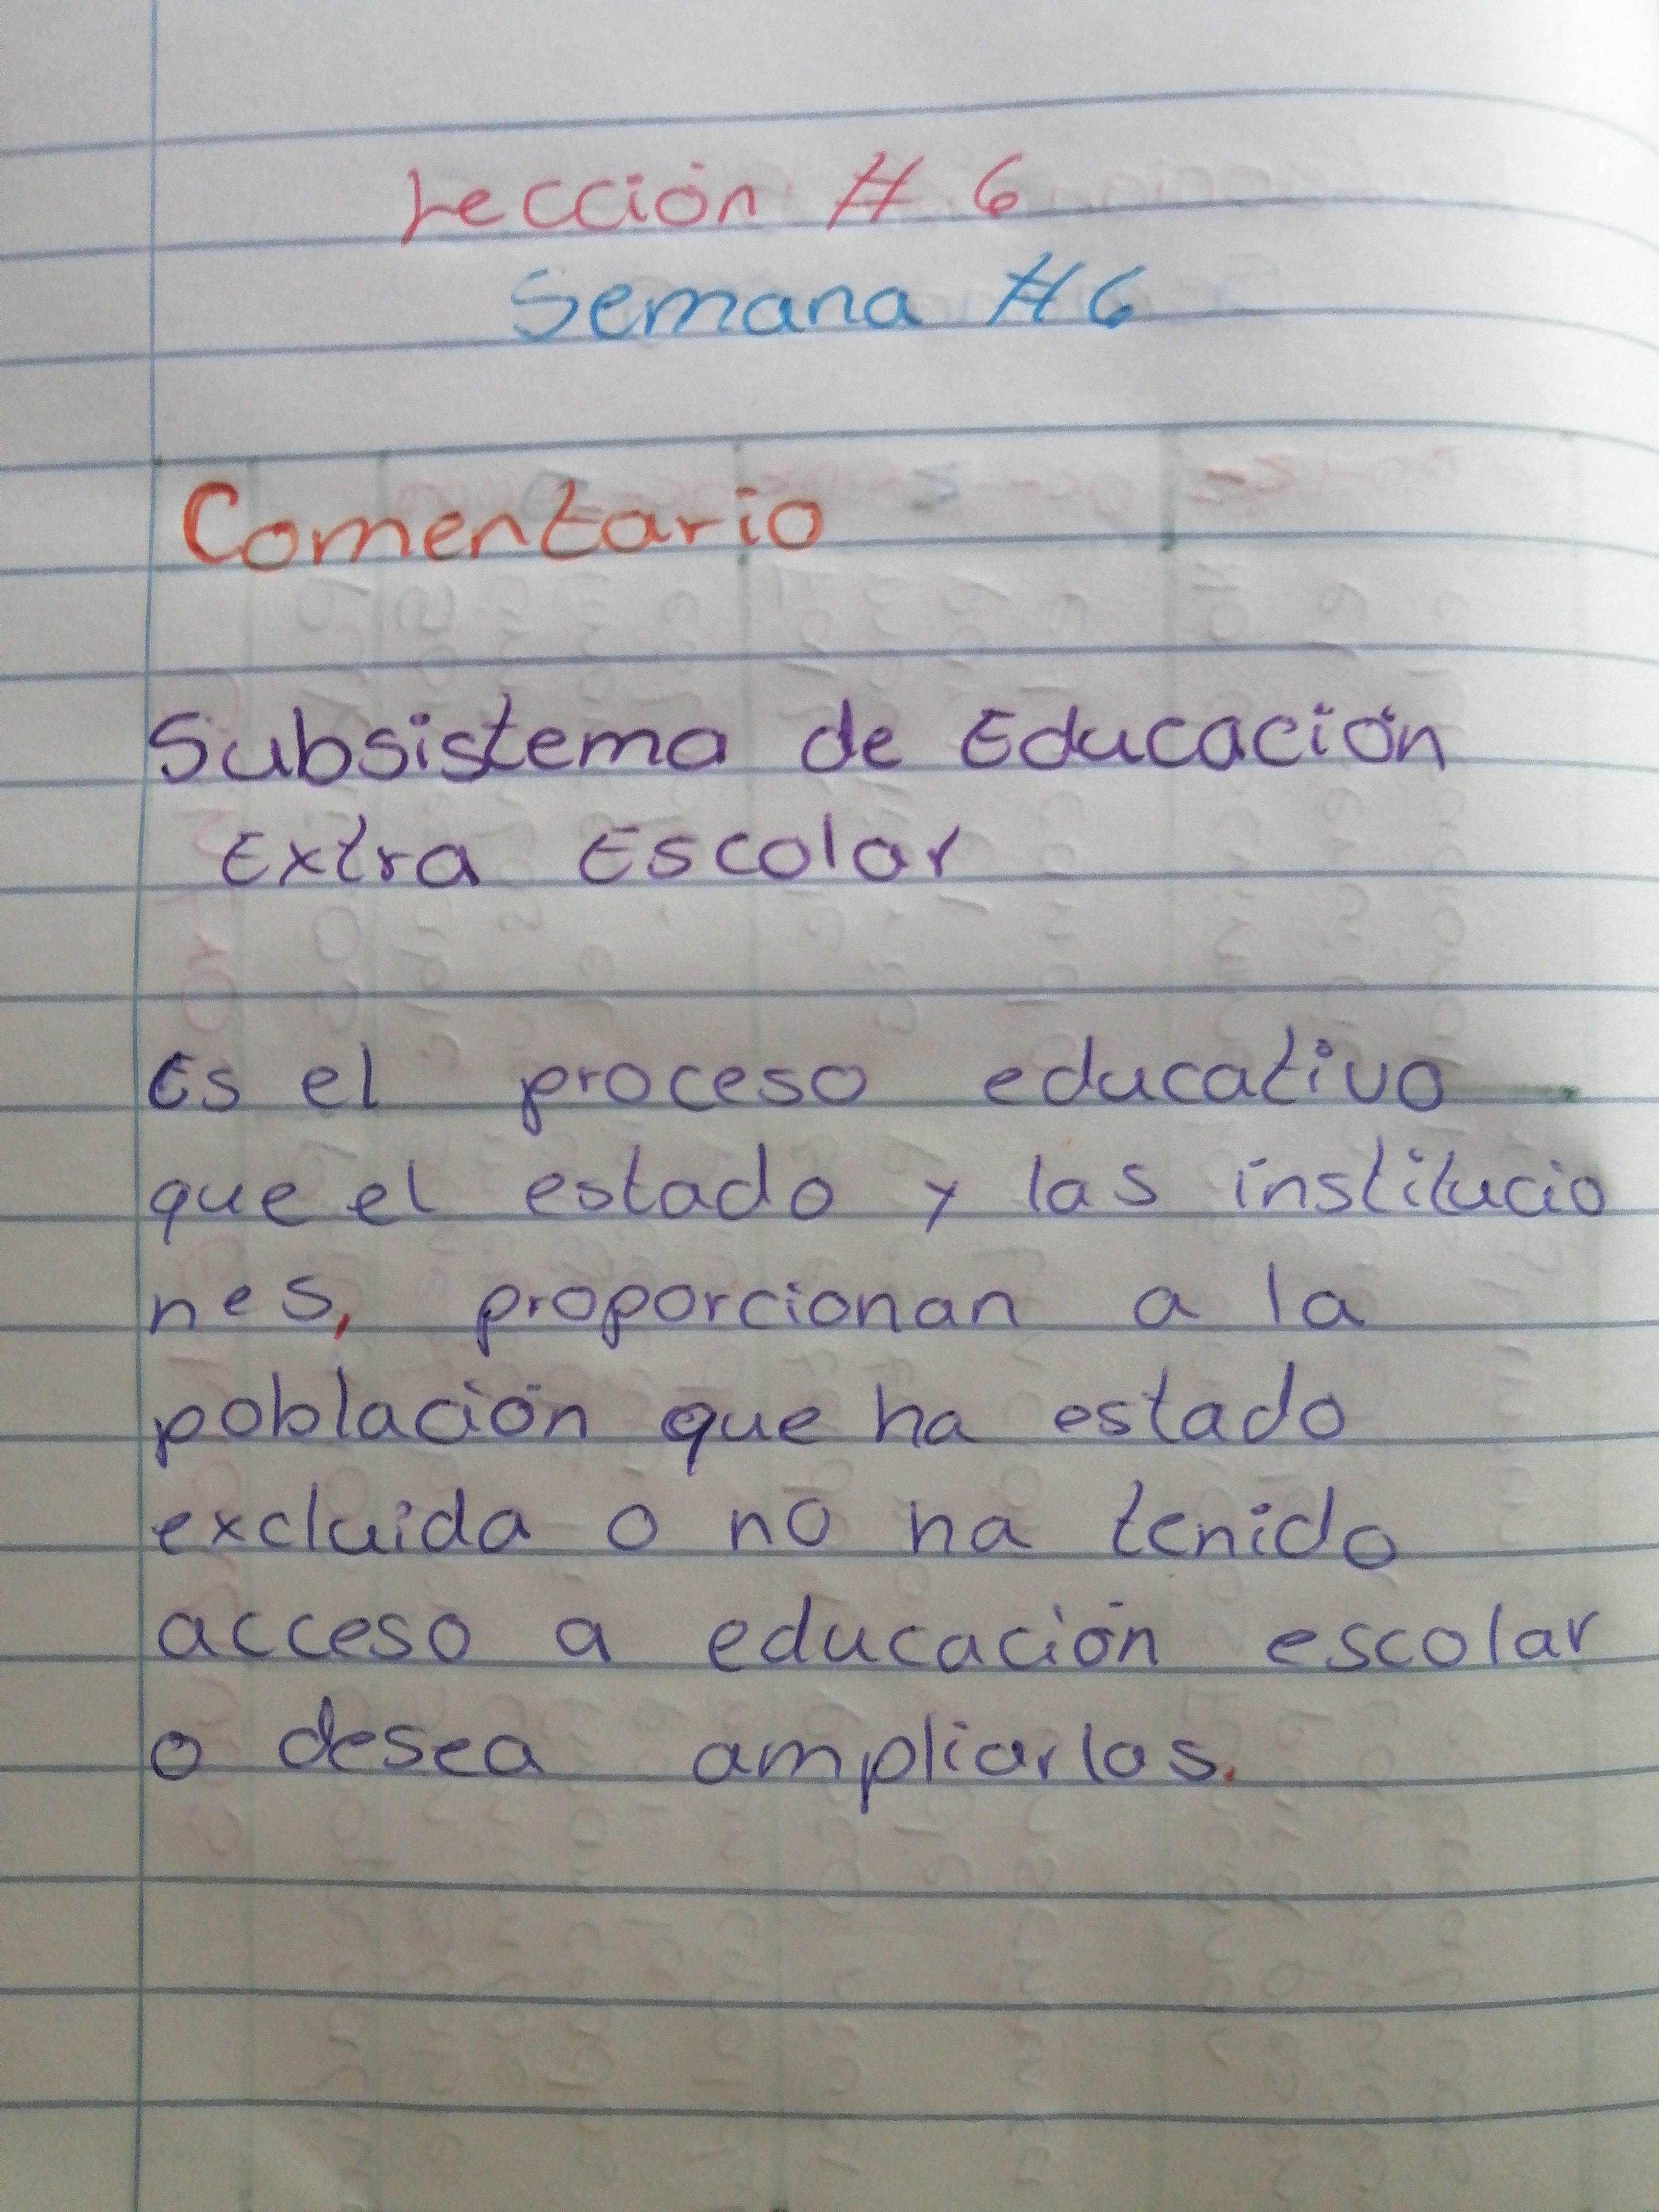 Lección # 6
Semana # 6
Comentario
Subsistema de Educación
Extra Escolar
Es el proceso educativo
que el estado y las institucio
nes, proporcionan a la
población que ha estado
excluida o no ha tenido
acceso a educación escolar
o desea ampliarlas.